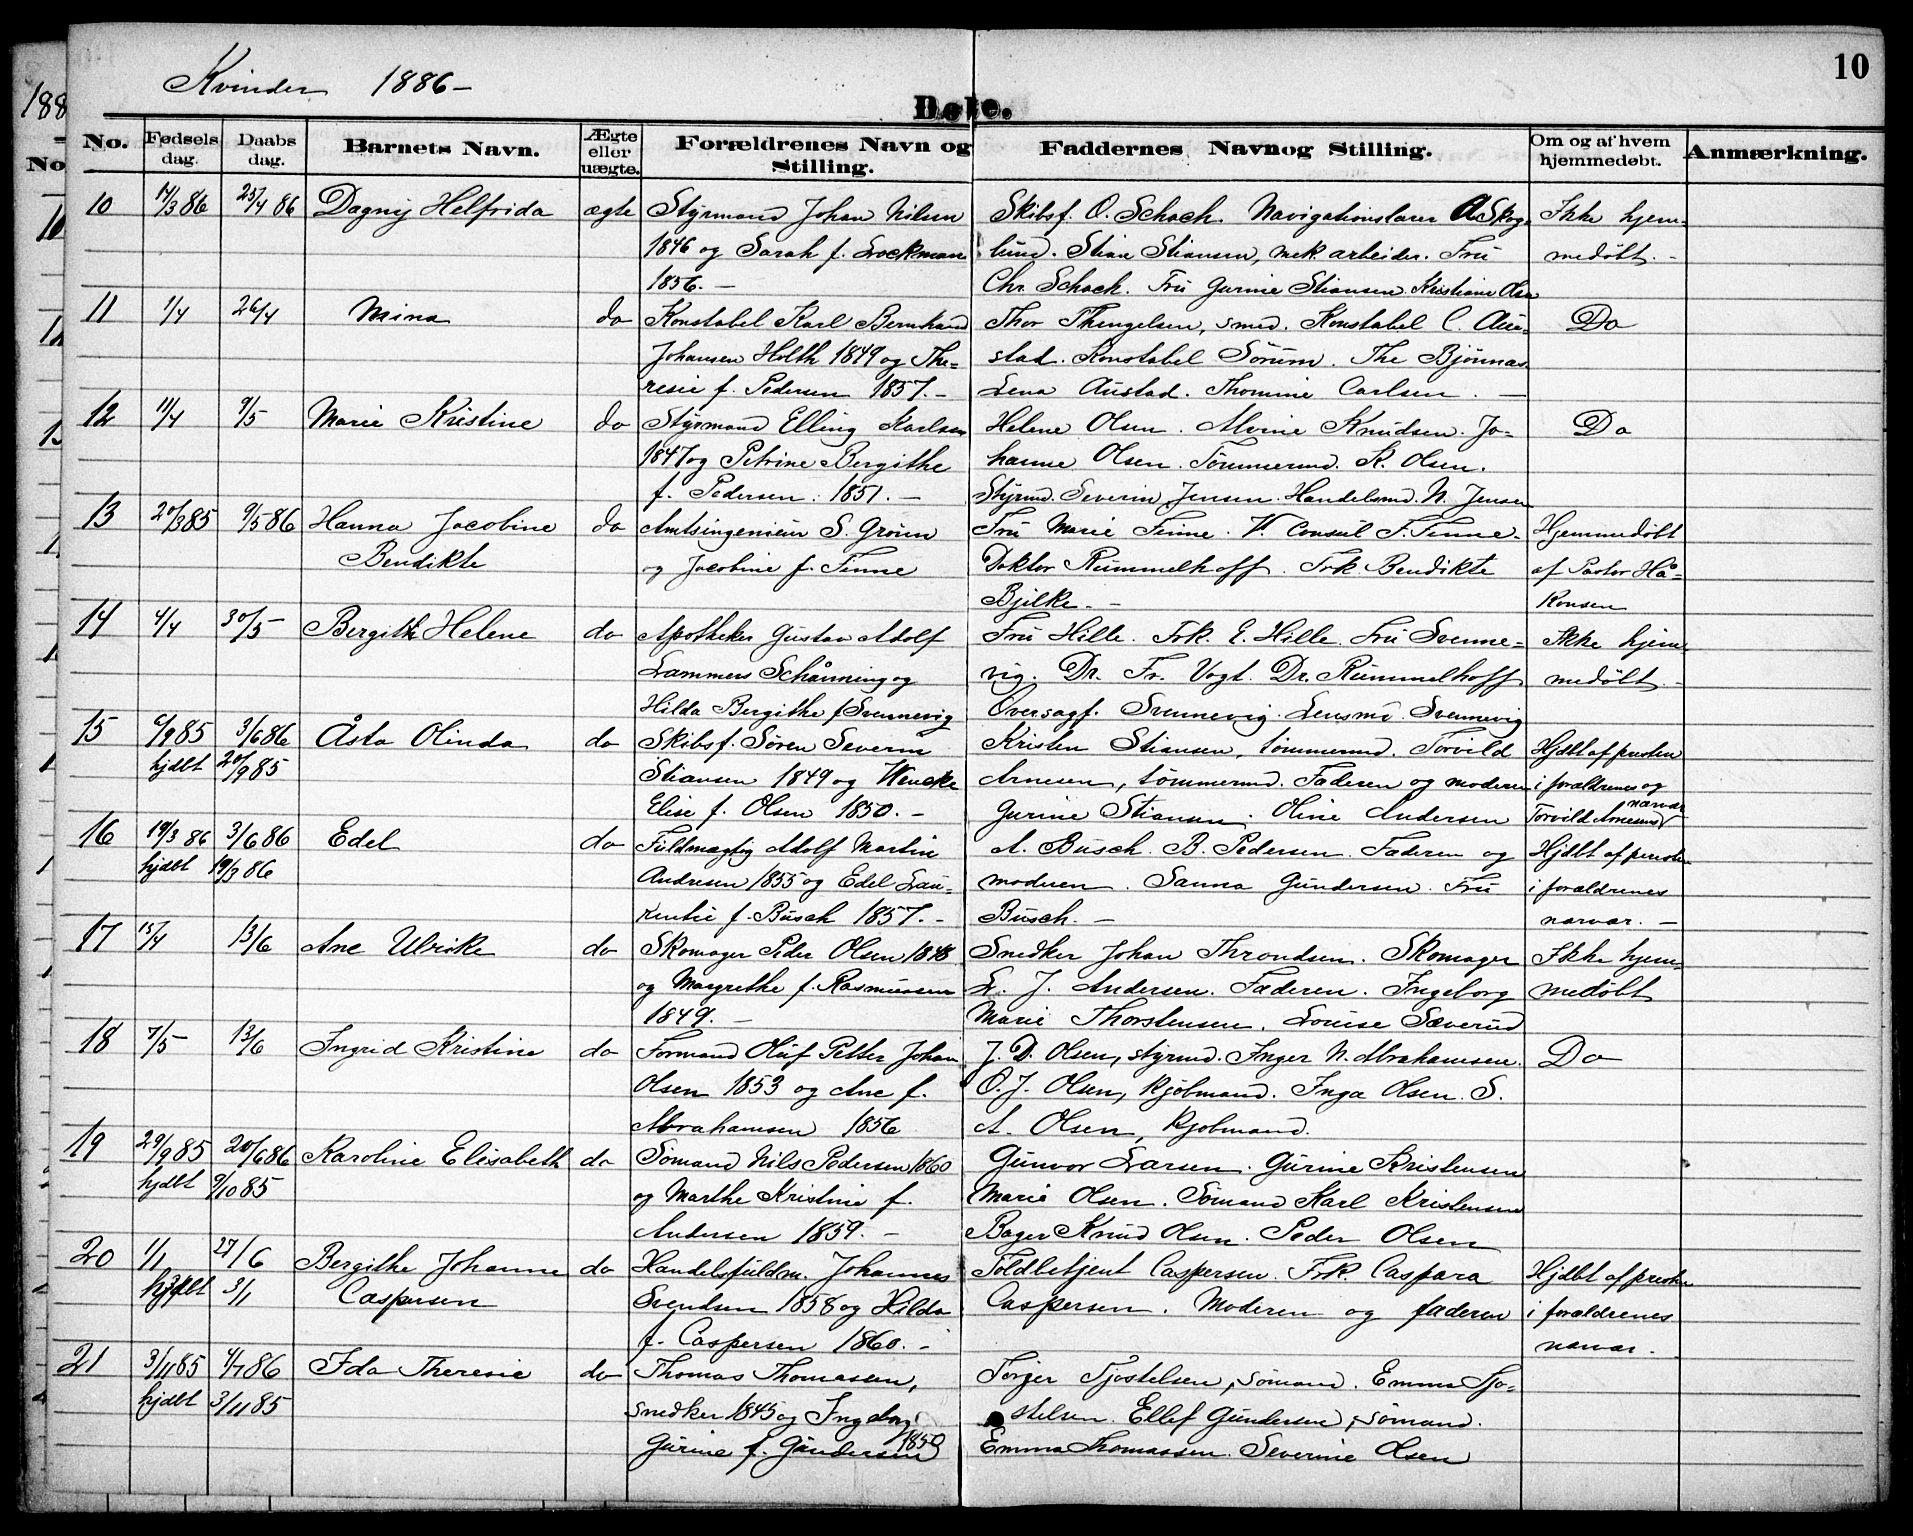 Kvinder 1886-
10
188
Døbte.
No.
No. Fødsels dag. Daabs dag. Barnets Navn. Ægte eller uægte. Forældrenes Navn og Stilling. Faddernes Navn og Stilling. Om og af hvem hjemmedøbt. Anmærkning.
10 17/3 86 25/4 86 Dagny Helfrida ægte Styrmand Johan Nilsen Skibsf. O. Schach. Navigationslærer A Skog- Ikke hjem-
1846 og Sarah f. Lockmann lund. Stian Stiansen, mek. arbeider. Fru medøbt. -
1856. - Chr. Schach. Fru Gurine Stiansen. Kristiane Olsen
11 1/4 26/4 Mina do Konstabel Karl Bernhard Thor Thengelsen, smed. Konstabel C. Au- Do
Johansen Holth 1849 og The- stad. Konstabel Sørum. The Bjønnas
resie f. Pedersen 1857. - Lena Austad. Thomine Carlsen. -
12 11/4 9/5 Marie Kristine do Styrmand Elling Karlsen Helene Olsen. Alvine Knudsen. Jo- Do
1847 og Petrine Bergithe hanne Olsen. Tømmermd. K. Olsen.
f. Pedersen. 1851. - Styrmd. Severin Jensen. Handelsmd. N. Jensen
13 20/3 85 9/5 86 Hanna Jacobine do Amtsingeniør S. Grønn Fru Marie Finne. V. Consul F. Finne. Hjemmedøbt
Bendikte og Jacobine f. Finne Doktor Rummelhoff. Frk. Bendikte af Pastor Hå-
Bjelke. - konsen
14 4/4 30/5 Bergithe Helene do Apotheker Gustav Adolf Fru Hille. Frk. E. Hille. Fru Svenne- Ikke hjem-
Lammers Schånning og vig. Dr. Fr. Vogt. Dr. Rummelhoff medøbt. -
Hilda Bergithe f Svennevig Oversagf. Svennevig. Lensmd. Svennevig
15 6/9 85 3/6 86 Åsta Olinda do Skibsf. Søren Severin Kristen Stiansen, tømmermd. Torvild Hjdbt af presten
hjdbt 20/9 85 Stiansen 1849 og Wencke Arnesen, tømmermd. Faderen og moderen i forældrenes og
Elise f. Olsen 1850. - Gurine Stiansen. Oline Andersen Torvild Arnesens nærvær
16 19/3 86 3/6 86 Edel do Fuldmægtig Adolf Martin A. Busch. B. Pedersen. Faderen og Hjdbt af presten
hjdbt 19/3 86 Andresen 1855 og Edel Lau- moderen. Sanna Gundersen. Fru i forældrenes
rentie f. Busch 1857. - Busch. - nærvær. -
17 15/4 13/6 Ane Ulrike do Skomager Peder Olsen 1848 Snedker Johan Throndsen. Skomager Ikke hjem-
og Margrethe f. Rasmussen L. J. Andersen. Faderen. Ingeborg medøbt
1849. - Marie Thorstensen. Louise Sæverud
18 7/5 13/6 Ingrid Kristine do Formand Oluf Petter Johan J. D. Olsen, styrmd. Inger N. Abrahamsen. Do
Olsen 1853 og Ane f. O. J. Olsen, kjøbmand. Inga Olsen. S.
Abrahamsen 1856 A. Olsen, kjøbmand.
19 29/9 85 20/6 86 Karoline Elisabeth do Sømand Nils Pedersen 1860 Gunvor Larsen. Gurine Kristensen
hjdbt 9/10 85 og Marthe Kristine f. Marie Olsen. Sømand Karl Kristensen
Andersen 1859. - Bager Knud Olsen. Peder Olsen
20 1/1 27/6 Bergithe Johanne do Handelsfuldm. Johannes Toldbetjent Caspersen. Frk. Caspara Hjdbt af presten
hjdbt 3/1 Caspersen Svendsen 1858 og Hilda Caspersen. Moderen og faderen i forældrenes
f. Caspersen 1860. - nærvær.
21 3/11 85 4/7 86 Ida Theresie do Thomas Thomasen, Torjer Tjostelsen, sømand. Emma Tjo-
hjdbt 3/11 85 snedker 1845 og Ingeborg stelsen. Ellef Gundersen, sømand.
Gurine f. Gundersen 1850 Emma Thomassen. Severine Olsen